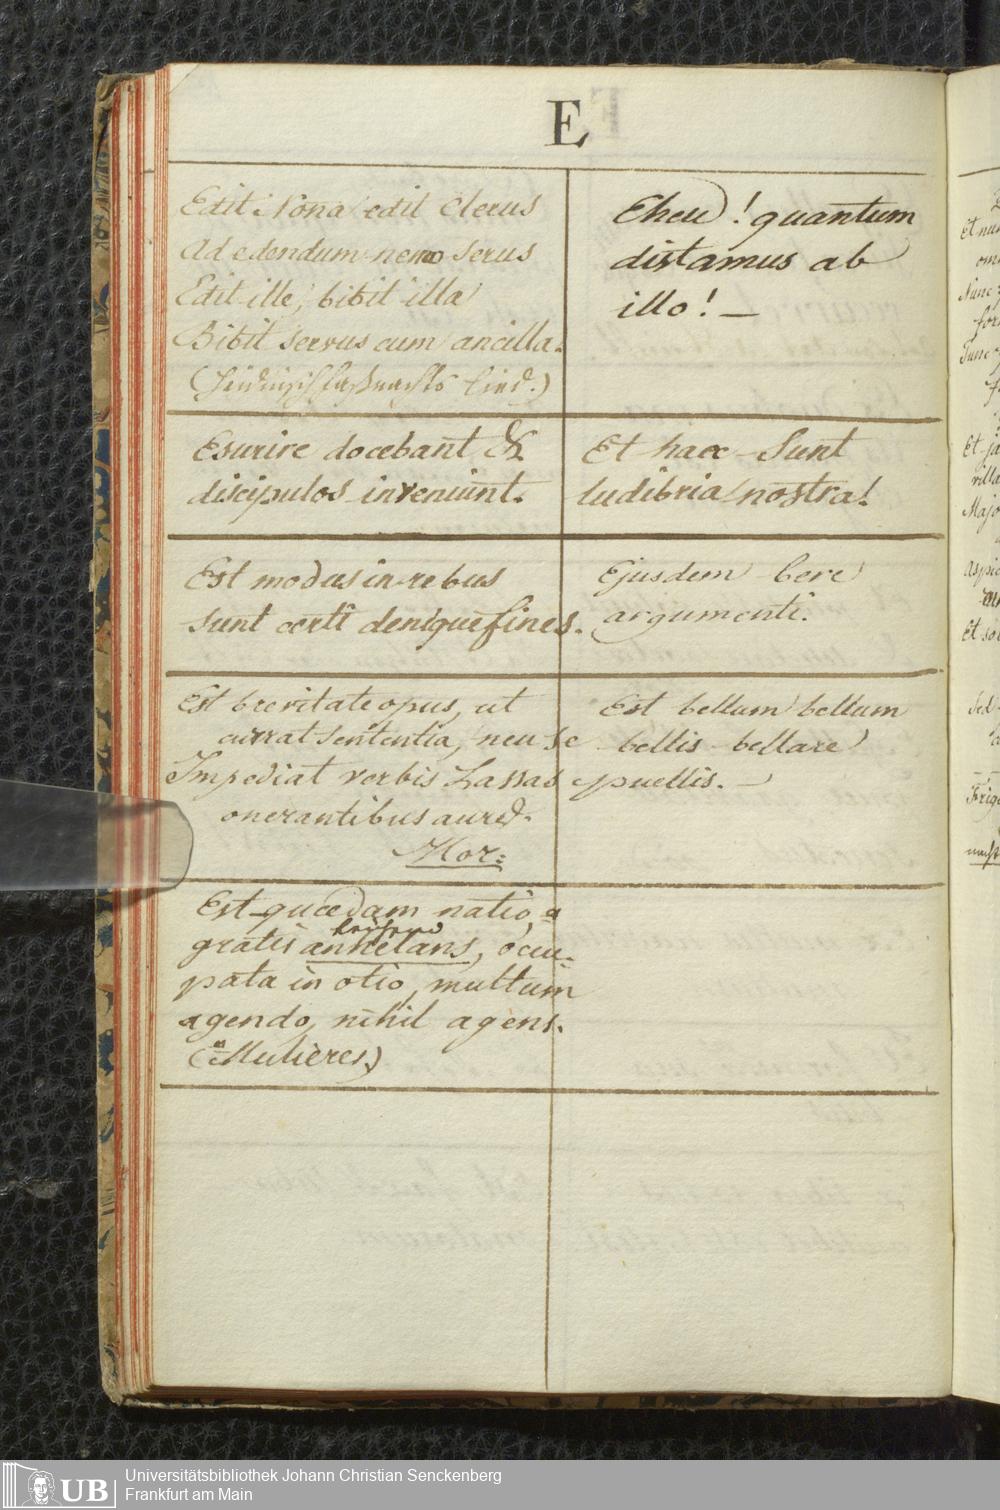 E
Edit Nona edit Clerus
Ad edendum nemo serus
Edit ille, bibit illa
Bibit servus cum ancilla.
Eheu! quantum
distamus ab
illo! —
Esurire docebant &
discipulos inveniunt.
Et haec sunt
ludibria nostra!
Est modus in rebus
sunt certi denique fines.
Ejusdem fere
argumenti.
Est brevitate opus, ut
currat sententia, neu se
Impediat verbis Lassas
onerantibus aures.
Hor:
Est bellum bellum
bellis bellare
puellis. —
Est quaedam natio,
gratis anhelans, occu-
pata in otio, multum
agendo, nihil agens.
(Mulieres.)
UB
Universitätsbibliothek Johann Christian Senckenberg
Frankfurt am Main